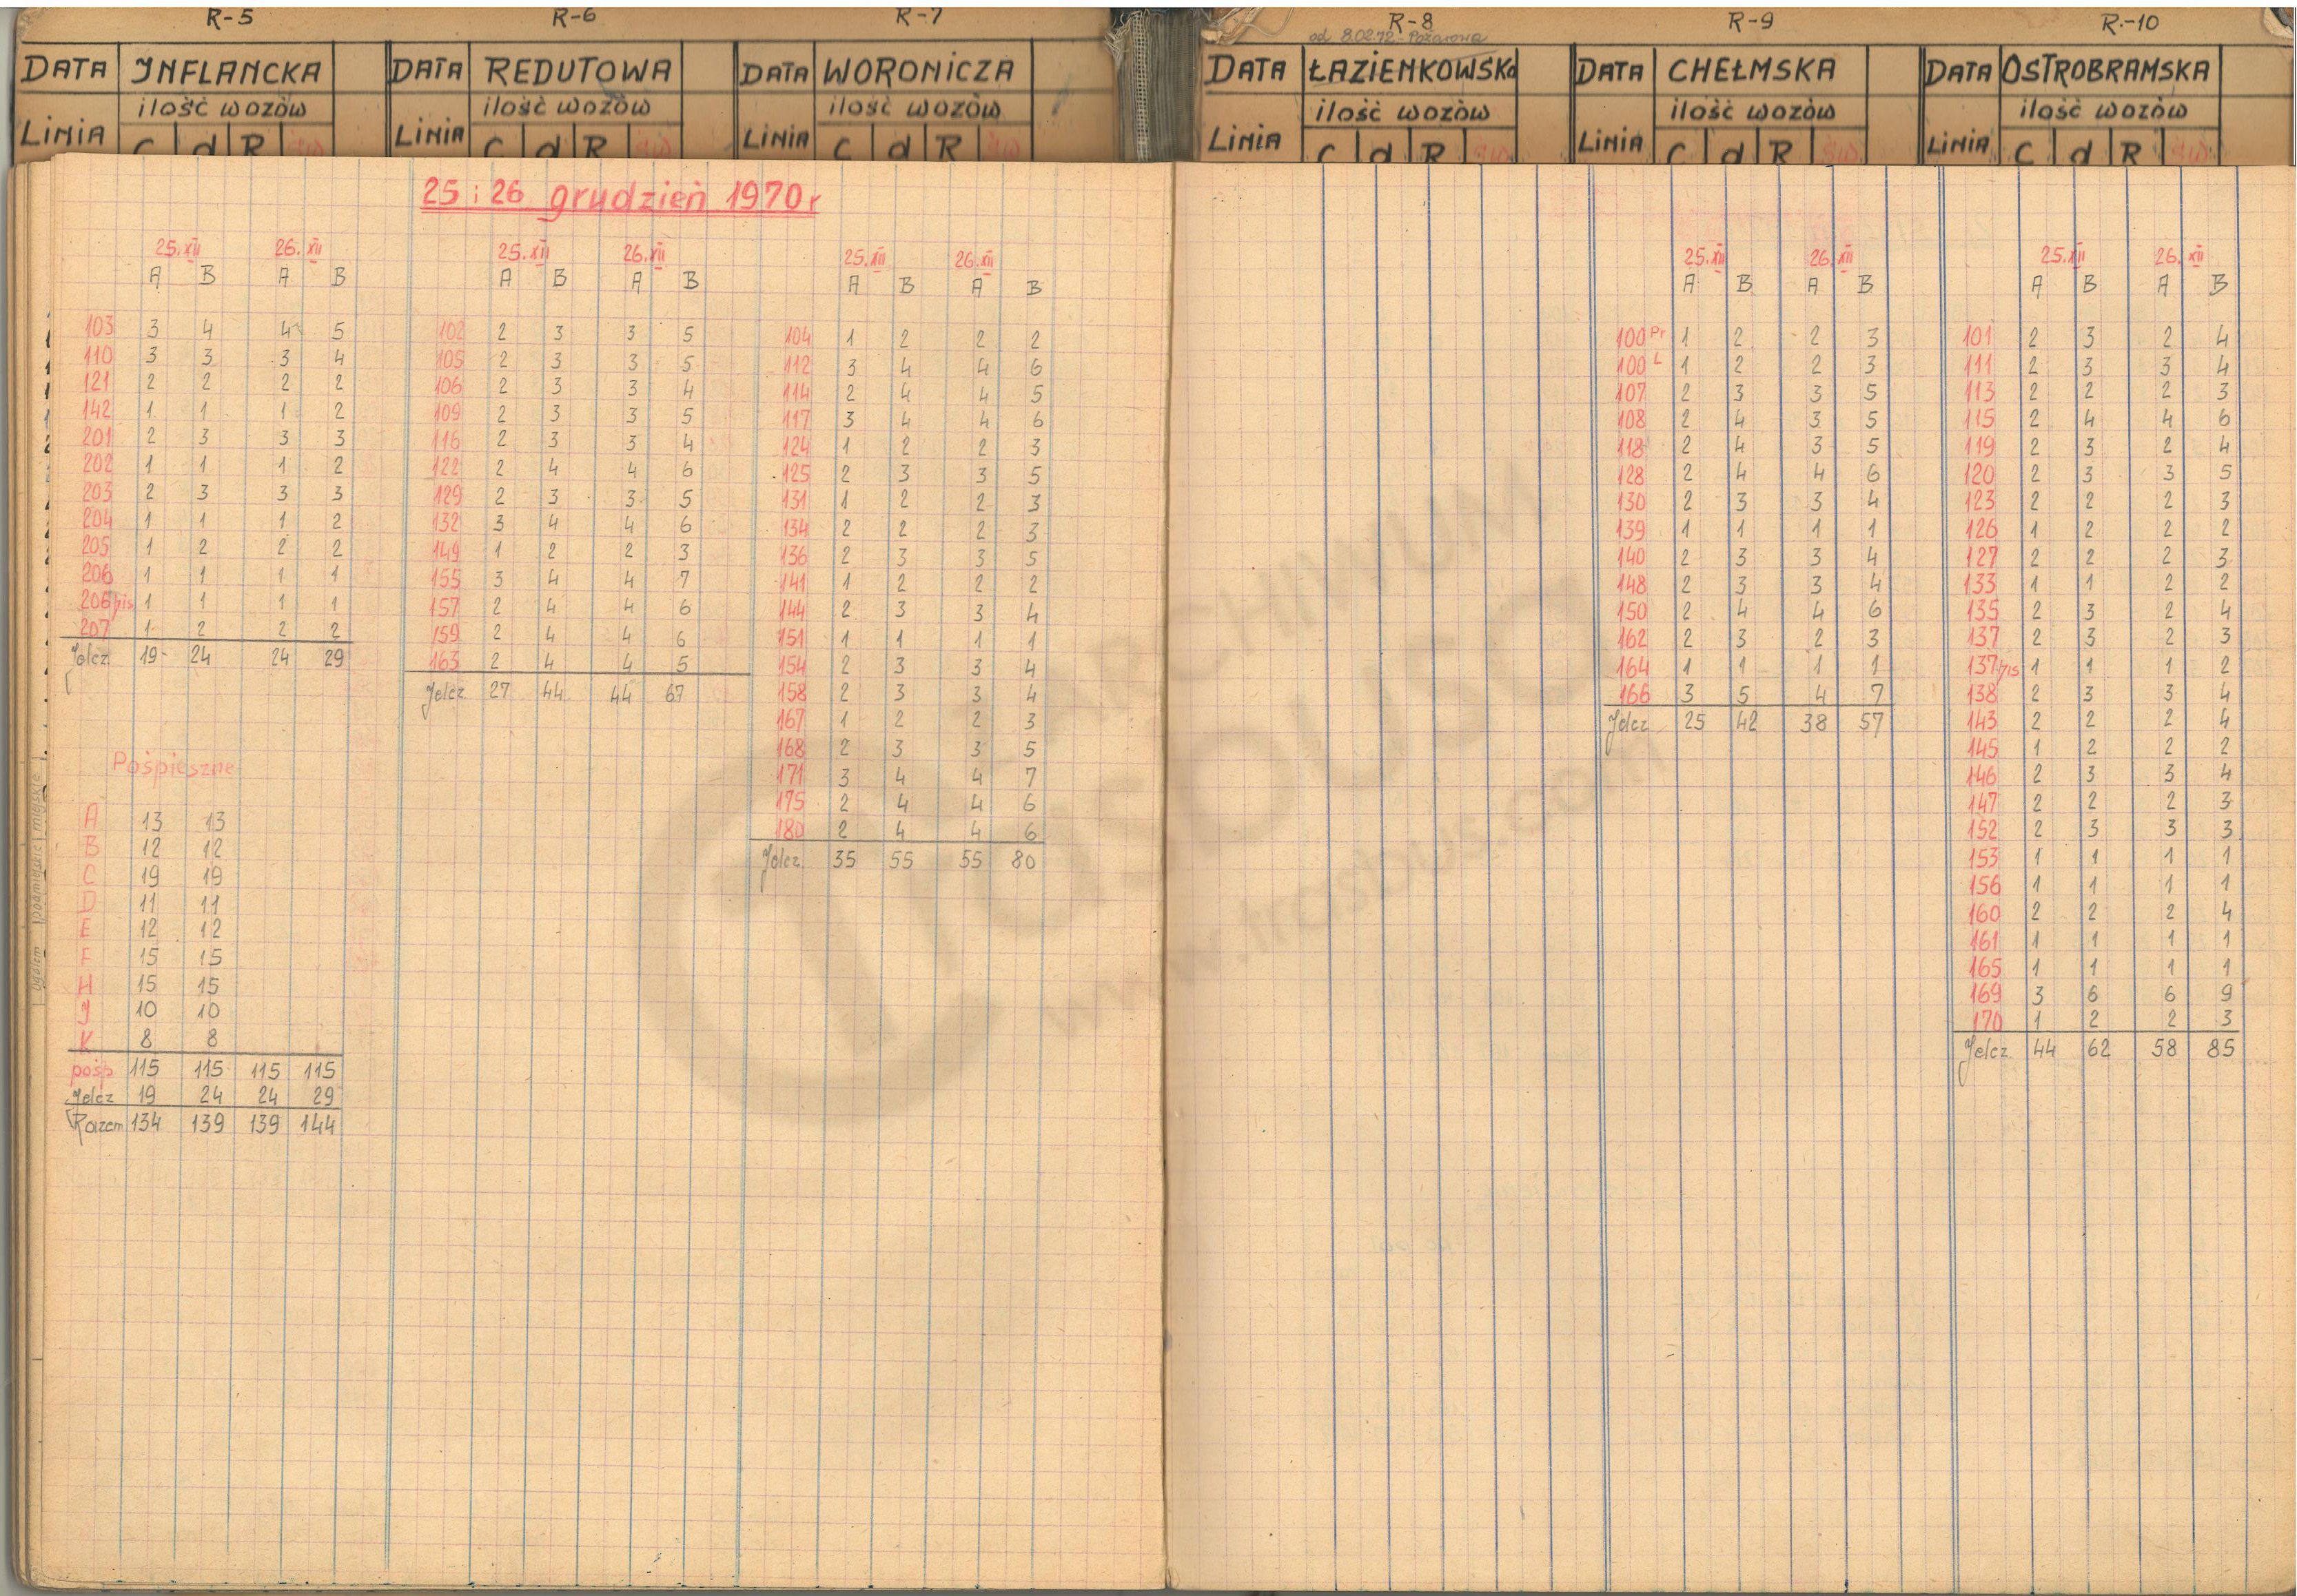 R-5
DATA INFLANCKA
ilość wozów
LINIA C d R
R-6
DATA REDUTOWA
ilość wozów
LINIA C d R
R-7
DATA WORONICZA
ilość wozów
LINIA C d R
R-8
od 8.02.72 - Pożarowa
DATA ŁAZIENKOWSKA
ilość wozów
LINIA C d R
R-9
DATA CHEŁMSKA
ilość wozów
LINIA C d R
R-10
DATA OSTROBRAMSKA
ilość wozów
LINIA C d R
25 i 26 grudzień 1970 r
25.XII 26.XII
A B A B
103 3 4 4 5
110 3 3 3 4
121 2 2 2 2
142 1 1 1 2
201 2 3 3 3
202 1 1 1 2
203 2 3 3 3
204 1 1 1 2
205 1 2 2 2
206 1 1 1 1
206 bis 1 1 1 1
207 1 2 2 2
Jelcz 19 24 24 29
Pośpieszne
A 13 13
B 12 12
C 19 19
D 11 11
E 12 12
F 15 15
H 15 15
J 10 10
K 8 8
pośp 115 115 115 115
Jelcz 19 24 24 29
Razem 134 139 139 144
25.XII 26.XII
A B A B
102 2 3 3 5
105 2 3 3 5
106 2 3 3 4
109 2 3 3 5
116 2 3 3 4
122 2 4 4 6
129 2 3 3 5
132 3 4 4 6
149 1 2 2 3
155 3 4 4 7
157 2 4 4 6
159 2 4 4 6
163 2 4 4 5
Jelcz 27 44 44 67
25.XII 26.XII
A B A B
104 1 2 2 2
112 3 4 4 6
114 2 4 4 5
117 3 4 4 6
124 1 2 2 3
125 2 3 3 5
131 1 2 2 3
134 2 2 2 3
136 2 3 3 5
141 1 2 2 2
144 2 3 3 4
151 1 1 1 1
154 2 3 3 4
158 2 3 3 4
167 1 2 2 3
168 2 3 3 5
171 3 4 4 7
175 2 4 4 6
180 2 4 4 6
Jelcz 35 55 55 80
25.XII 26.XII
A B A B
100 Pr 1 2 2 3
100 L 1 2 2 3
107 2 3 3 5
108 2 4 3 5
118 2 4 3 5
128 2 4 4 6
130 2 3 3 4
139 1 1 1 1
140 2 3 3 4
148 2 3 3 4
150 2 4 4 6
162 2 3 2 3
164 1 1 1 1
166 3 5 4 7
Jelcz 25 42 38 57
25.XII 26.XII
A B A B
101 2 3 2 4
111 2 3 3 4
113 2 2 2 3
115 2 4 4 6
119 2 3 2 4
120 2 3 3 5
123 2 2 2 3
126 1 2 2 2
127 2 2 2 3
133 1 1 2 2
135 2 3 2 4
137 2 3 2 3
137 bis 1 1 1 2
138 2 3 3 4
143 2 2 2 4
145 1 2 2 2
146 2 3 3 4
147 2 2 2 3
152 2 3 3 3
153 1 1 1 1
156 1 1 1 1
160 2 2 2 4
161 1 1 1 1
165 1 1 1 1
169 3 6 6 9
170 1 2 2 3
Jelcz 44 62 58 85
ogółem podmiejskie miejskie